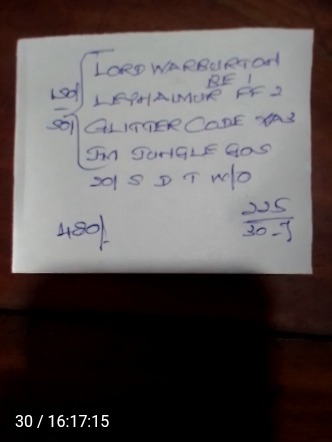 LORD WARBURTON
RE 1
150/ LEPHALMUR FF 2
50/ GLITTER CODE XA3
JM JUNGLE GOS
20/ S D T W/O
480/-
225
30-J
30 / 16:17:15